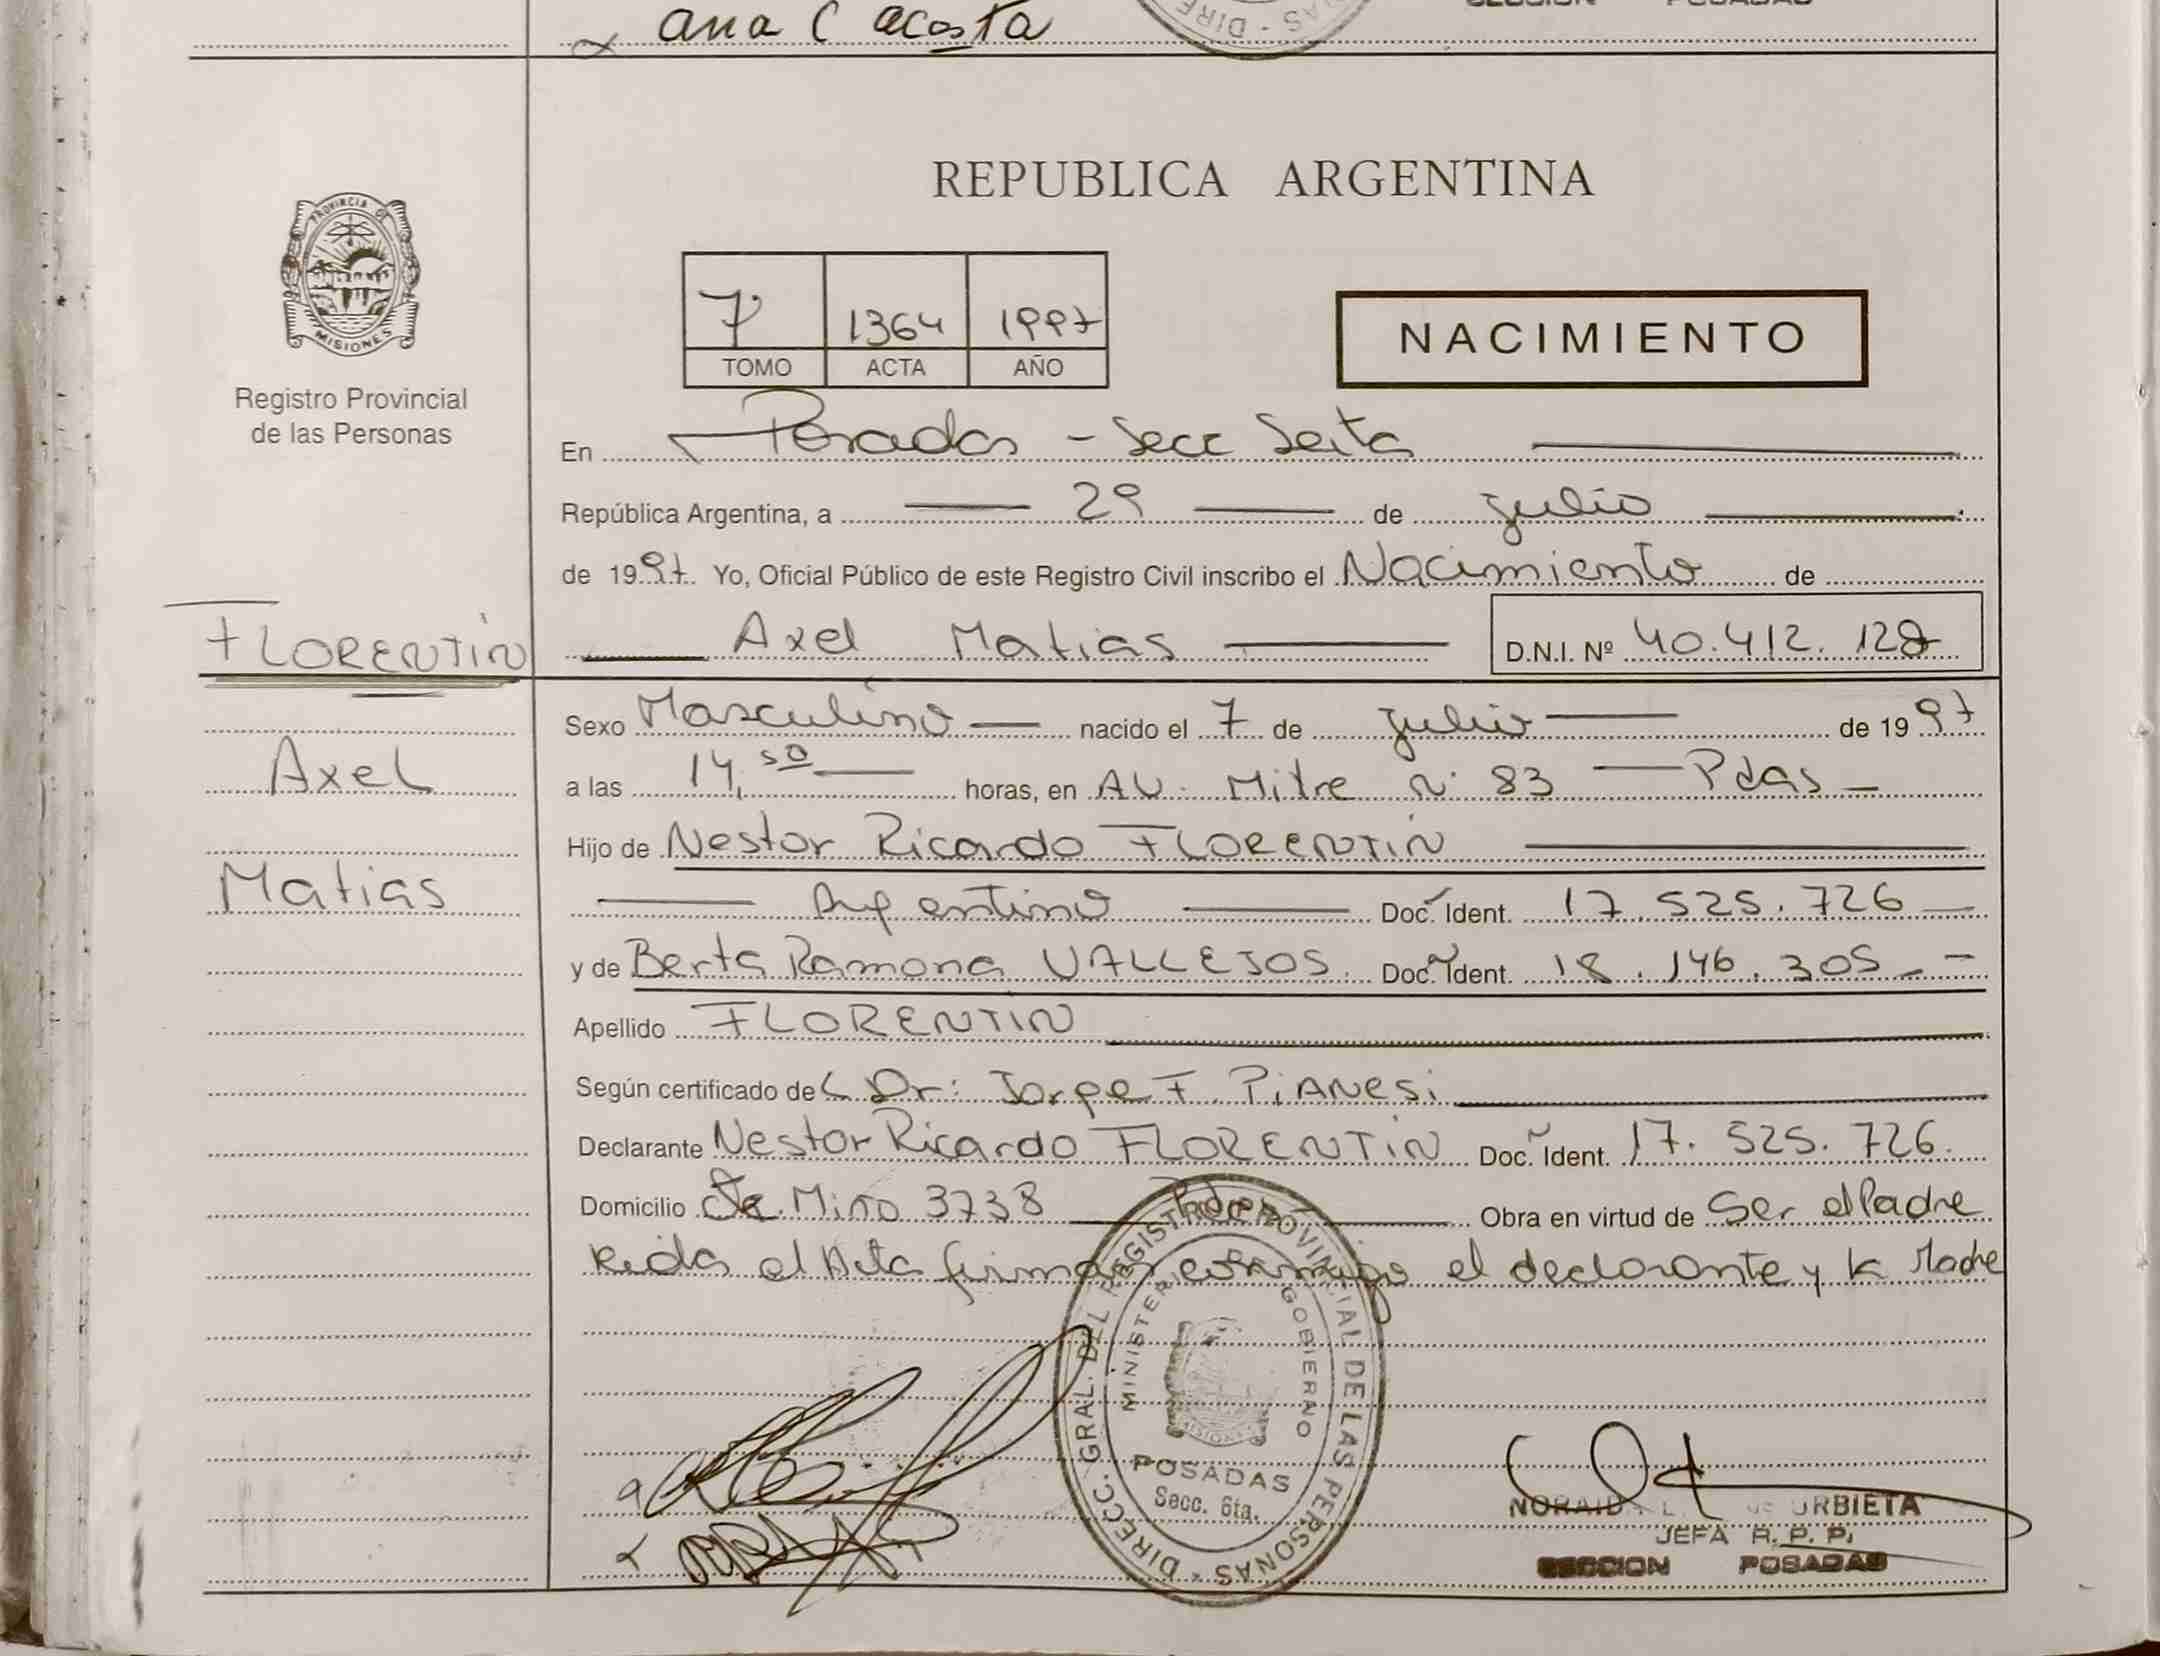 Ana C Acosta
REPUBLICA ARGENTINA
PROVINCIA DE
MISIONES
Registro Provincial
de las Personas
7 1364 1997
TOMO ACTA AÑO
NACIMIENTO
En Posadas - Secc Sexta
República Argentina, a 29 de julio
de 1997. Yo, Oficial Público de este Registro Civil inscribo el Nacimiento de
FLORENTIN
Axel Matias D.N.I. Nº 40.412.128
Axel
Matias
Sexo Masculino nacido el 7 de julio de 1997
a las 14,50 horas, en AV. Mitre Nº 83 Pdas
Hijo de Nestor Ricardo FLORENTIN
Argentino Doc. Ident. 17.525.726
y de Berta Ramona VALLEJOS. Doc. Ident. 18.146.305
Apellido FLORENTIN
Según certificado de Dr: Jorge F. PiANESi
Declarante Nestor Ricardo FLORENTIN Doc. Ident. 17.525.726.
Domicilio Miño 3738 Pdas Obra en virtud de Ser el Padre
Leida el Acta firman conmigo el declarante y la Madre
DIRECC. GRAL. DEL REGISTRO PROVINCIAL DE LAS PERSONAS
MINISTERIO DE GOBIERNO
MISIONES
POSADAS
Secc. 6ta.
URBIETA
JEFA R. P. P.
SECCION POSADAS